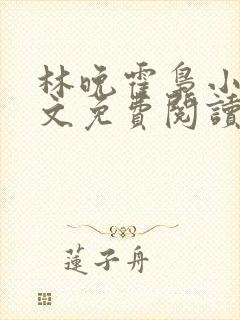 林晚霍梟小
文免費閱讀
蓮子舟